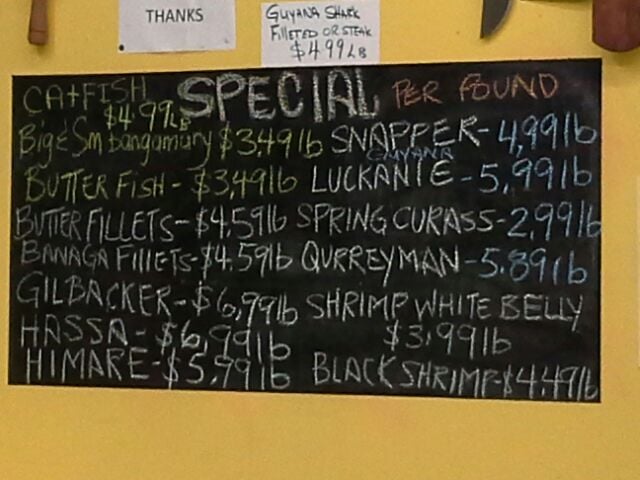 THANKS
GUYANA SHARK
FILLETED OR STEAK
$4.99 LB
SPECIAL PER POUND
CATFISH
$4.99LB
Big & Sm bangamary $3.49lb
BUTTER FISH - $3.49lb
BUTTER FILLETS - $4.59lb
BANAGA FILLETS - $4.59lb
GILBACKER - $6,99lb
HASSA - $6,99lb
HIMARE - $5,99lb
SNAPPER - 4,99lb
GUYANA
LUCKANIE - 5,99lb
SPRING CURASS - 2,99lb
QURREYMAN - 5.89lb
SHRIMP WHITE BELLY
$3,99lb
BLACK SHRIMP - $4.49lb